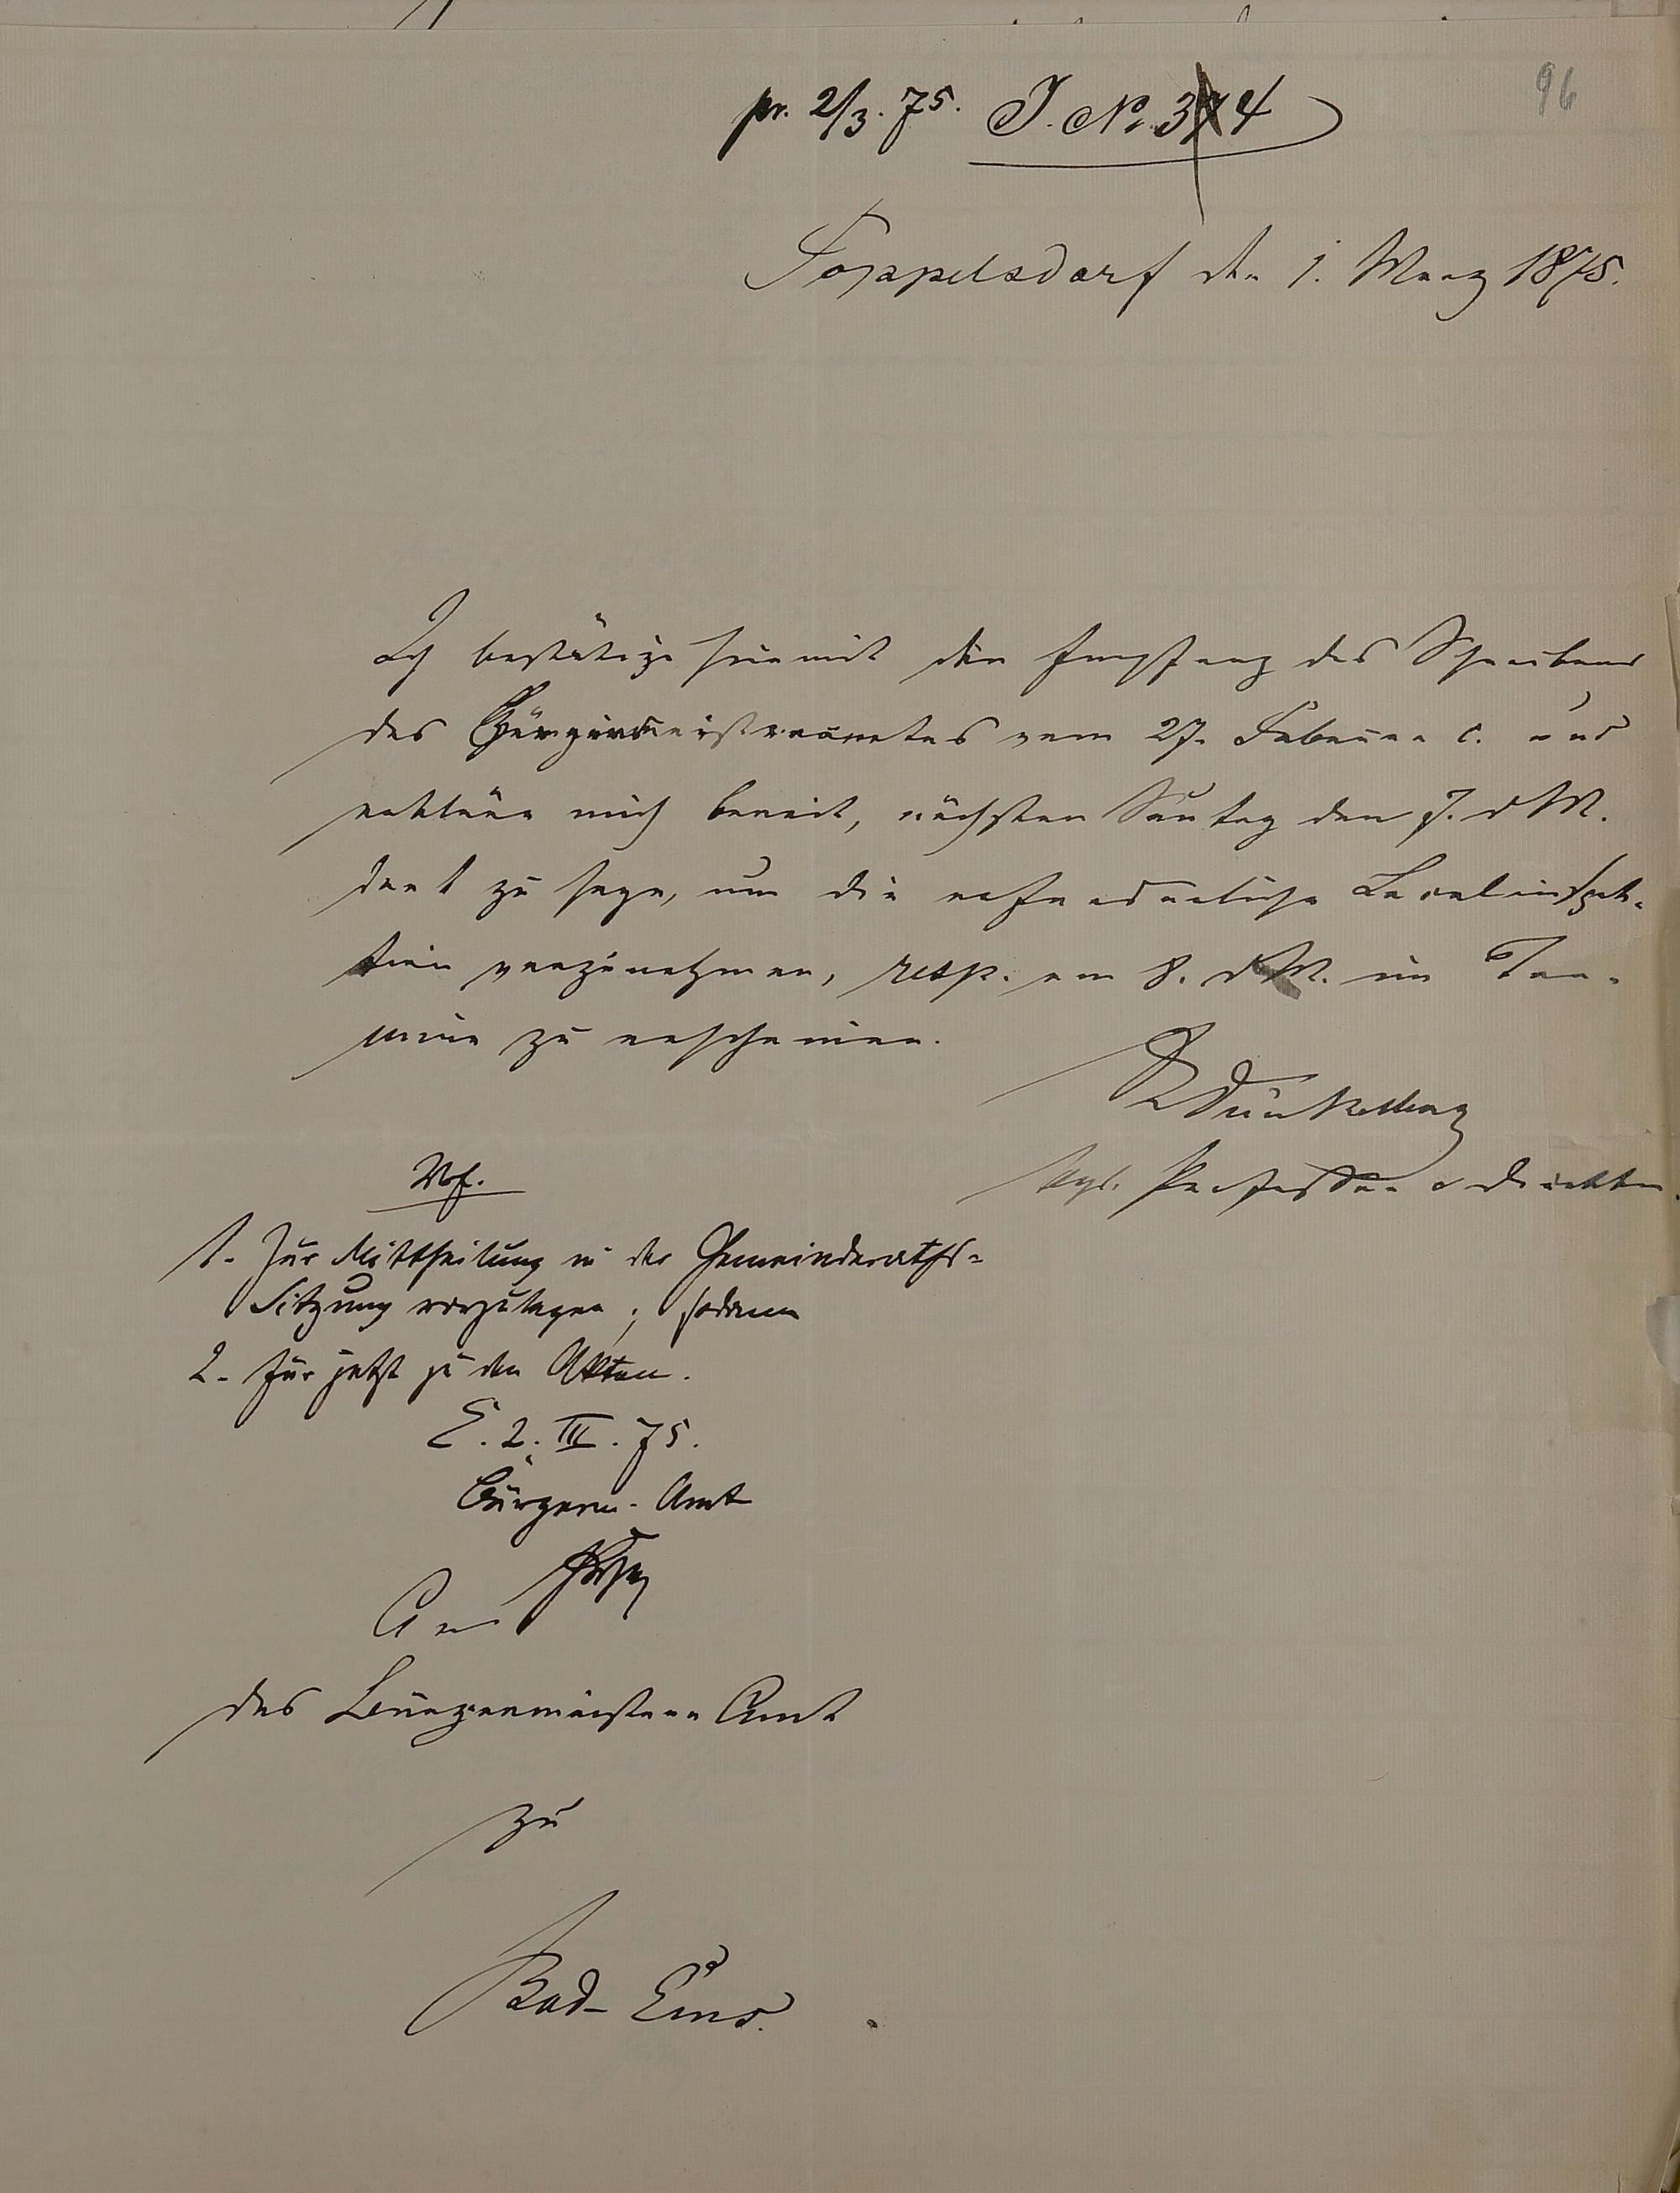 96
pr. 2/3. 75. J. No. 374
Poppelsdorf den 1. Maerz 1875.
Ich bestätige hiermit den Empfang des Schreibens
des Bürgermeisteramtes vom 27. Februar c. und
erkläre mich bereit, nächsten Sontag den 7. d M.
dort zu sein, um die erforderliche Localinspek-
tion vorzunehmen, resp. am 8. d M. im Ter-
mine zu erscheinen.
Dünkelberg
Kgl. Professor & Direktor.
Vf.
1. Zur Mittheilung in der Gemeinderaths-
Sitzung vorzulegen; sodann
2. für jetzt zu den Akten.
E. 2. III. 75.
Bürgerm. Amt
An
das Buergermeister Amt
zu
Bad-Ems.